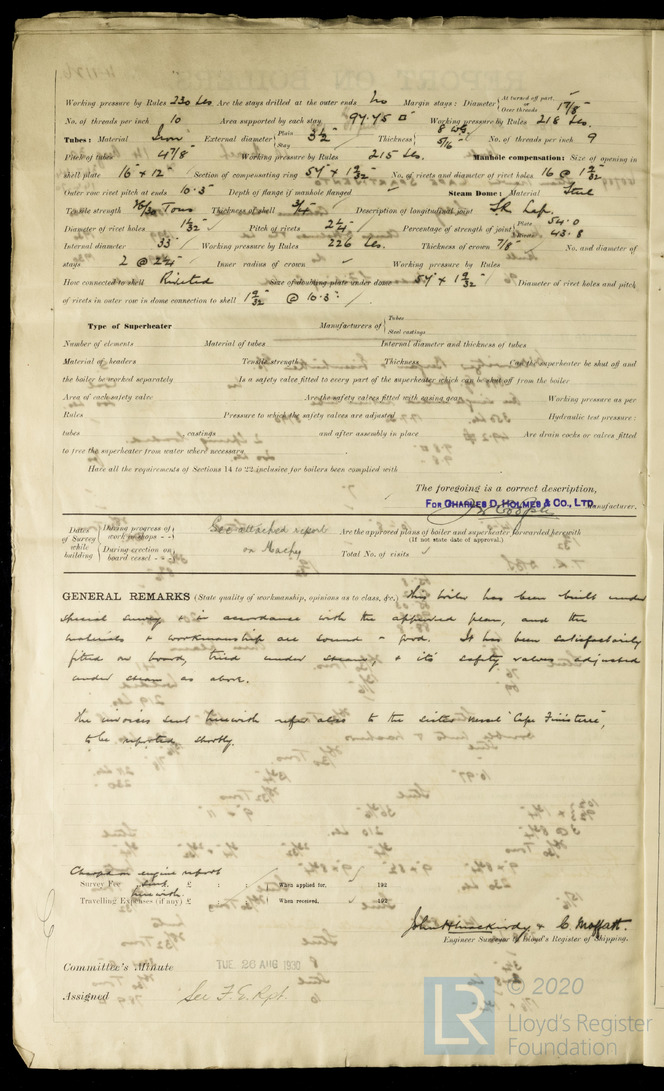 Working pressure by Rules 230 Lbs. Are the stays drilled at the outer ends No Margin stays: Diameter { At turned off part, or Over threads 1 7/8"
No. of threads per inch 10 Area supported by each stay 97.75 □" Working pressure by Rules 218 Lbs.
Tubes: Material Iron External diameter { Plain Stay 3½" Thickness { 8 WG 5/16" No. of threads per inch 9
Pitch of tubes 4 7/8" Working pressure by Rules 215 Lbs. Manhole compensation: Size of opening in
shell plate 16" x 12" Section of compensating ring No. of rivets and diameter of rivet holes 16 @ 1 9/32"
Outer row rivet pitch at ends 10.5" Depth of flange if manhole flanged Steam Dome: Material Steel
Tensile strength 26/30 Tons Thickness of shell 3/4" Description of longitudinal joint S.R. Lap.
Diameter of rivet holes 1 9/32" Pitch of rivets Percentage of strength of joint { Plate 54.0 Rivets 43.8
Internal diameter 33" Working pressure by Rules 226 Lbs. Thickness of crown 7/8" No. and diameter of
stays 2 @ 2¼" Inner radius of crown Working pressure by Rules
How connected to shell Riveted Size of doubling plate under dome Diameter of rivet holes and pitch
of rivets in outer row in dome connection to shell 1 9/32" @ 10.3"
Type of Superheater Manufacturers of { Tubes Steel castings
Number of elements Material of tubes Internal diameter and thickness of tubes
Material of headers Tensile strength Thickness Can the superheater be shut off and
the boiler be worked separately Is a safety valve fitted to every part of the superheater which can be shut off from the boiler
Area of each safety valve Are the safety valves fitted with easing gear Working pressure as per
Rules Pressure to which the safety valves are adjusted Hydraulic test pressure:
tubes castings and after assembly in place Are drain cocks or valves fitted
to free the superheater from water where necessary
Have all the requirements of Sections 14 to 22 inclusive for boilers been complied with
The foregoing is a correct description,
FOR CHARLES D. HOLMES & CO., LTD. Manufacturer.
Dates of Survey while building { During progress of work in shops - - } See attached report Are the approved plans of boiler and superheater forwarded herewith
(If not state date of approval.)
{ During erection on board vessel - - - } on Machy Total No. of visits
GENERAL REMARKS (State quality of workmanship, opinions as to class, &c.) This boiler has been built under
special survey & in accordance with the approved plan, and the
materials & workmanship are sound & good. It has been satisfactorily
fitted on board, tried under steam, & its safety valves adjusted
under steam as above.
The invoices sent herewith refer also to the sister vessel "Cape Finisterre",
to be reported shortly.
Charged on engine report
Survey Fee ... £ : : When applied for, 192
herewith.
Travelling Expenses (if any) £ : : When received, 192
& C. Moffatt.
Engineer Surveyor to Lloyd's Register of Shipping.
Committee's Minute TUE. 26 AUG 1930
Assigned See F.E. Rpt.
LR © 2020
Lloyd's Register
Foundation